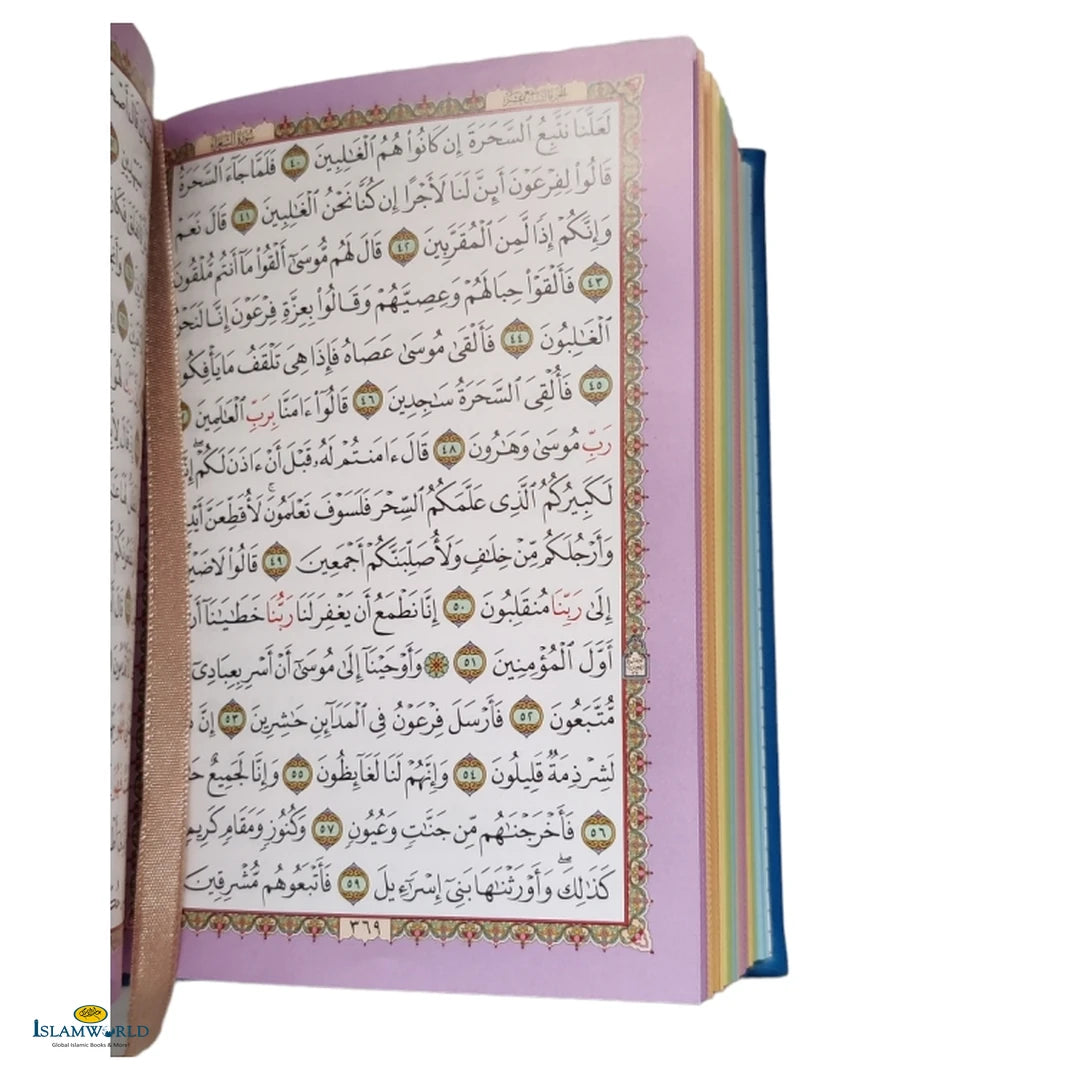 لَعَلَّنَا نَتَّبِعُ ٱلسَّحَرَةَ إِن كَانُوا۟ هُمُ ٱلْغَٰلِبِينَ ٤٠ فَلَمَّا جَآءَ ٱلسَّحَرَةُ
قَالُوا۟ لِفِرْعَوْنَ أَئِنَّ لَنَا لَأَجْرًا إِن كُنَّا نَحْنُ ٱلْغَٰلِبِينَ ٤١ قَالَ نَعَمْ
وَإِنَّكُمْ إِذًا لَّمِنَ ٱلْمُقَرَّبِينَ ٤٢ قَالَ لَهُم مُّوسَىٰٓ أَلْقُوا۟ مَآ أَنتُم مُّلْقُونَ
٤٣ فَأَلْقَوْا۟ حِبَالَهُمْ وَعِصِيَّهُمْ وَقَالُوا۟ بِعِزَّةِ فِرْعَوْنَ إِنَّا لَنَحْنُ
ٱلْغَٰلِبُونَ ٤٤ فَأَلْقَىٰ مُوسَىٰ عَصَاهُ فَإِذَا هِىَ تَلْقَفُ مَا يَأْفِكُونَ
٤٥ فَأُلْقِىَ ٱلسَّحَرَةُ سَٰجِدِينَ ٤٦ قَالُوٓا۟ ءَامَنَّا بِرَبِّ ٱلْعَٰلَمِينَ
رَبِّ مُوسَىٰ وَهَٰرُونَ ٤٨ قَالَ ءَامَنتُمْ لَهُۥ قَبْلَ أَنْ ءَاذَنَ لَكُمْ
لَكَبِيرُكُمُ ٱلَّذِى عَلَّمَكُمُ ٱلسِّحْرَ فَلَسَوْفَ تَعْلَمُونَ لَأُقَطِّعَنَّ
وَأَرْجُلَكُم مِّنْ خِلَٰفٍ وَلَأُصَلِّبَنَّكُمْ أَجْمَعِينَ ٤٩ قَالُوا۟ لَا ضَيْرَ
إِلَىٰ رَبِّنَا مُنقَلِبُونَ ٥٠ إِنَّا نَطْمَعُ أَن يَغْفِرَ لَنَا رَبُّنَا خَطَٰيَٰنَآ أَن
أَوَّلَ ٱلْمُؤْمِنِينَ ٥١ وَأَوْحَيْنَآ إِلَىٰ مُوسَىٰٓ أَنْ أَسْرِ بِعِبَادِىٓ
مُّتَّبَعُونَ ٥٢ فَأَرْسَلَ فِرْعَوْنُ فِى ٱلْمَدَآئِنِ حَٰشِرِينَ ٥٣ إِنَّ
لَشِرْذِمَةٌ قَلِيلُونَ ٥٤ وَإِنَّهُمْ لَنَا لَغَآئِظُونَ ٥٥ وَإِنَّا لَجَمِيعٌ
٥٦ فَأَخْرَجْنَٰهُم مِّن جَنَّٰتٍ وَعُيُونٍ ٥٧ وَكُنُوزٍ وَمَقَامٍ كَرِيمٍ
كَذَٰلِكَ وَأَوْرَثْنَٰهَا بَنِىٓ إِسْرَٰٓءِيلَ ٥٩ فَأَتْبَعُوهُم مُّشْرِقِينَ
٣٦٩
ISLAMWORLD
Global Islamic Books & More!